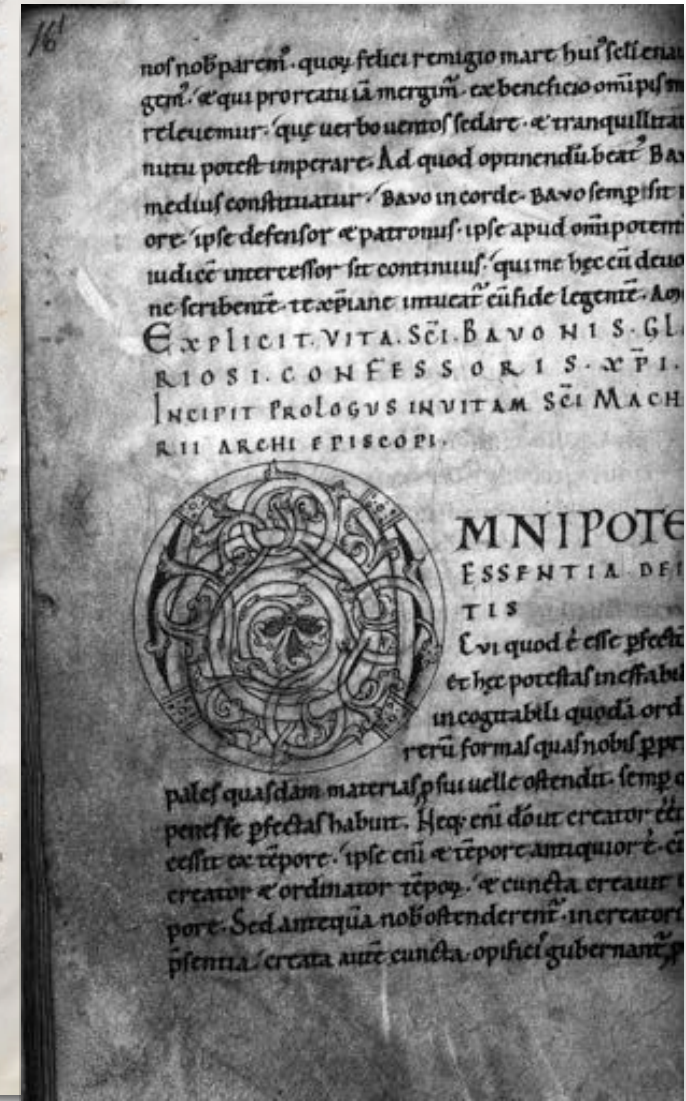 16¹
nos nob̄ parem᷒. quoꝝ felici remigio mare hui᷒ scl̄i enau
gem᷒. & qui pro reatu iā mergim᷒. ex beneficio om̄ipis
releuemur. quę uerbo uentos sedare. & tranquillitat
nutu potest imperare. Ad quod optinendū beat᷒ Ba
medius constituatur. Bavo in corde. Bavo semp̱ sit
ore. ipse defensor & patronus. ipse apud om̄ipotent
iudicē intercessor sit continuus. qui me hęc cū deuo
ne scribentē. te xp̄iane intueat᷑ cū fide legentē. Am
Explicit. Vita. Sc̄i. Bavonis. Gl
riosi. confessoris. xp̄i.
Incipit prologvs in vitam Sc̄i Mach
rii archi episcopi.
MNIPOTE
Essentia dei
tis
Cvi quod ē esse ꝑfect
et hęc potestas ineffabil
incogitabili quodā ord
rerū formas quas nobis ꝑ
pales quasdam materias ꝓ sui uelle ostendit. semp̱
penes se ꝑfectas habuit. Neq; eni d̄o ut creator
cessit ex tēpore. ipse eni & tēpore antiquior ē.
creator & ordinator tēpoꝝ. & cuncta creauit
pore. Sed antequā nob̄ ostenderent᷑. in creatori
p̄sentia. creata autē cuncta. opifici᷒ gubernant᷑